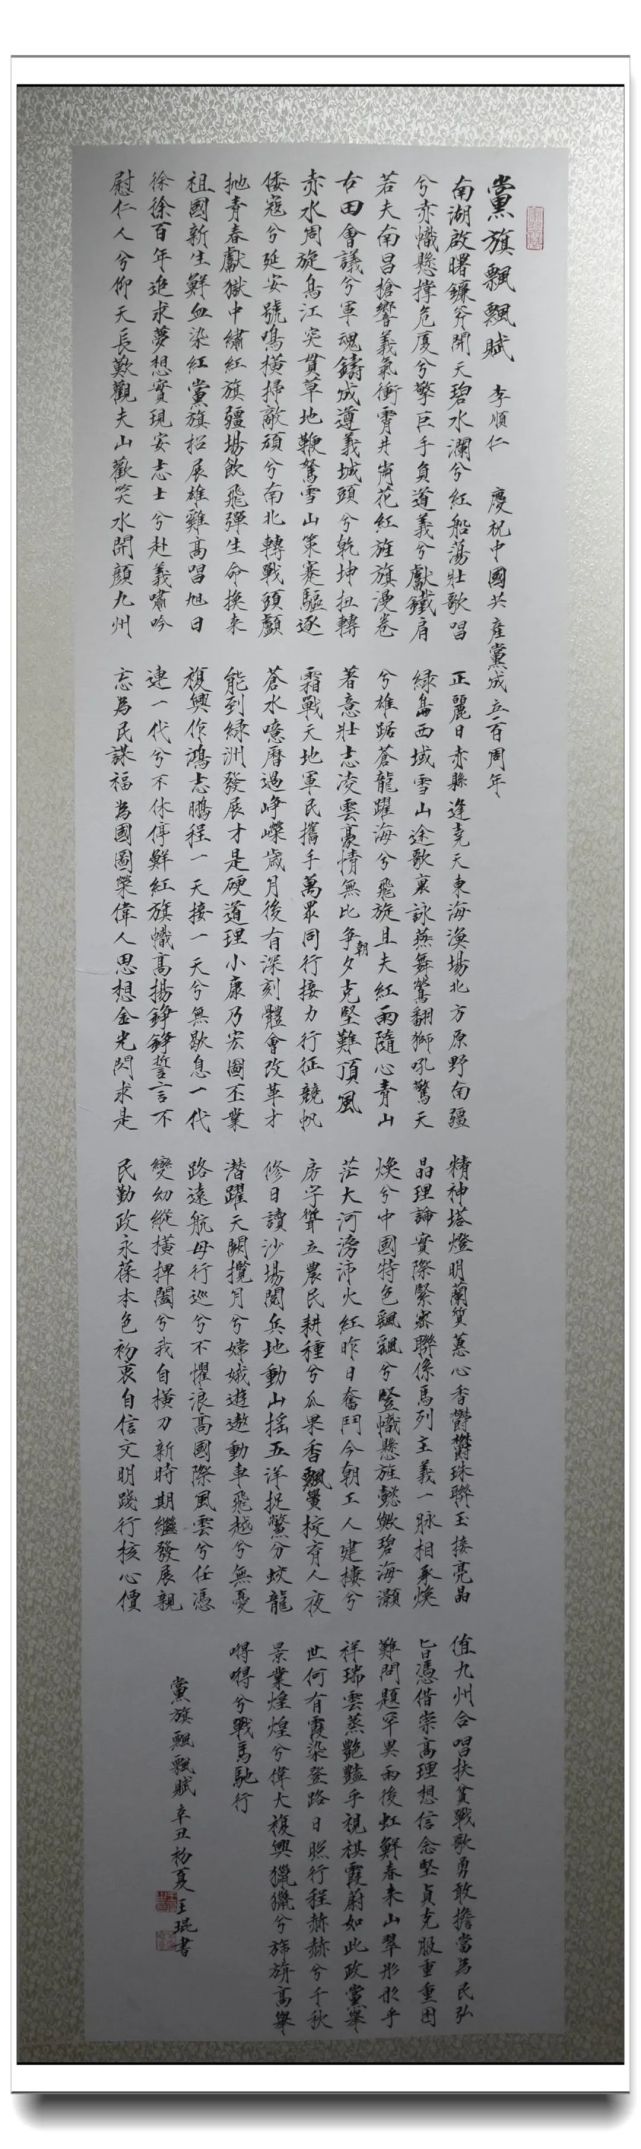 黨旗飄飄賦 李順仁 慶祝中國共產黨成立一百周年
南湖啟曙鐮斧開天碧水瀾兮紅船蕩壯歌唱
兮赤幟懸撐危廈兮擎巨手負道義兮獻鐵肩
若夫南昌槍響義氣衝霄井崗花紅旌旗漫卷
古田會議兮軍魂鑄成遵義城頭兮乾坤扭轉
赤水周旋烏江突貫草地鞭駑雪山策蹇驅逐
倭寇兮延安號鳴橫掃敵頑兮南北轉戰頭顱
拋青春獻獄中繡紅旗疆場飲飛彈生命換來
祖國新生鮮血染紅黨旗招展雄雞高唱旭日
徐徐百年追求夢想實現安志士兮赴義嘯吟
慰仁人兮仰天長歎觀夫山歡笑水開顏九州
正麗日赤縣逢堯天東海漁場北方原野南疆
綠島西域雪山途歌裏詠燕舞鶯翻獅吼驚天
兮雄踞蒼龍躍海兮飛旋且夫紅雨隨心青山
著意壯志凌雲豪情無比爭朝夕克堅難頂風
霜戰天地軍民攜手萬眾同行接力行征競帆
蒼水噫曆過崢嶸歲月後有深刻體會改革才
能到綠洲發展才是硬道理小康乃宏圖丕業
複興作鴻志鵬程一天接一天兮無歇息一代
連一代兮不休停鮮紅旗幟高揚錚錚誓言不
忘為民謀福為國圖榮偉人思想金光閃求是
精神塔燈明蘭質蕙心香鬱鬱珠聯玉接亮晶
晶理論實際緊密聯係馬列主義一脉相承煥
煥兮中國特色飄飄兮豎幟懸旌懿歟碧海灝
茫大河滂沛火紅昨日奮鬥今朝工人建樓兮
房宇聳立農民耕種兮瓜果香飄黌校育人夜
修日讀沙場閱兵地動山搖五洋捉鱉兮蛟龍
潛躍天闕攬月兮嫦娥遊遨動車飛越兮無憂
路遠航母行巡兮不懼浪高國際風雲兮任憑
變幻縱橫捭闔兮我自橫刀新時期繼發展親
民勤政永葆本色初衷自信文明踐行核心價
值九州合唱扶貧戰歌勇敢擔當為民弘
旨憑借崇高理想信念堅貞克服重重困
難問題罕異雨後虹鮮春來山翠彤彤乎
祥瑞雲蒸艷豔乎視祺霞蔚如此政黨舉
世何有霞染登路日照行程赫赫兮千秋
景業煌煌兮偉大複興獵獵兮旆旂高舉
嘚嘚兮戰馬馳行
黨旗飄飄賦辛丑初夏王琨書